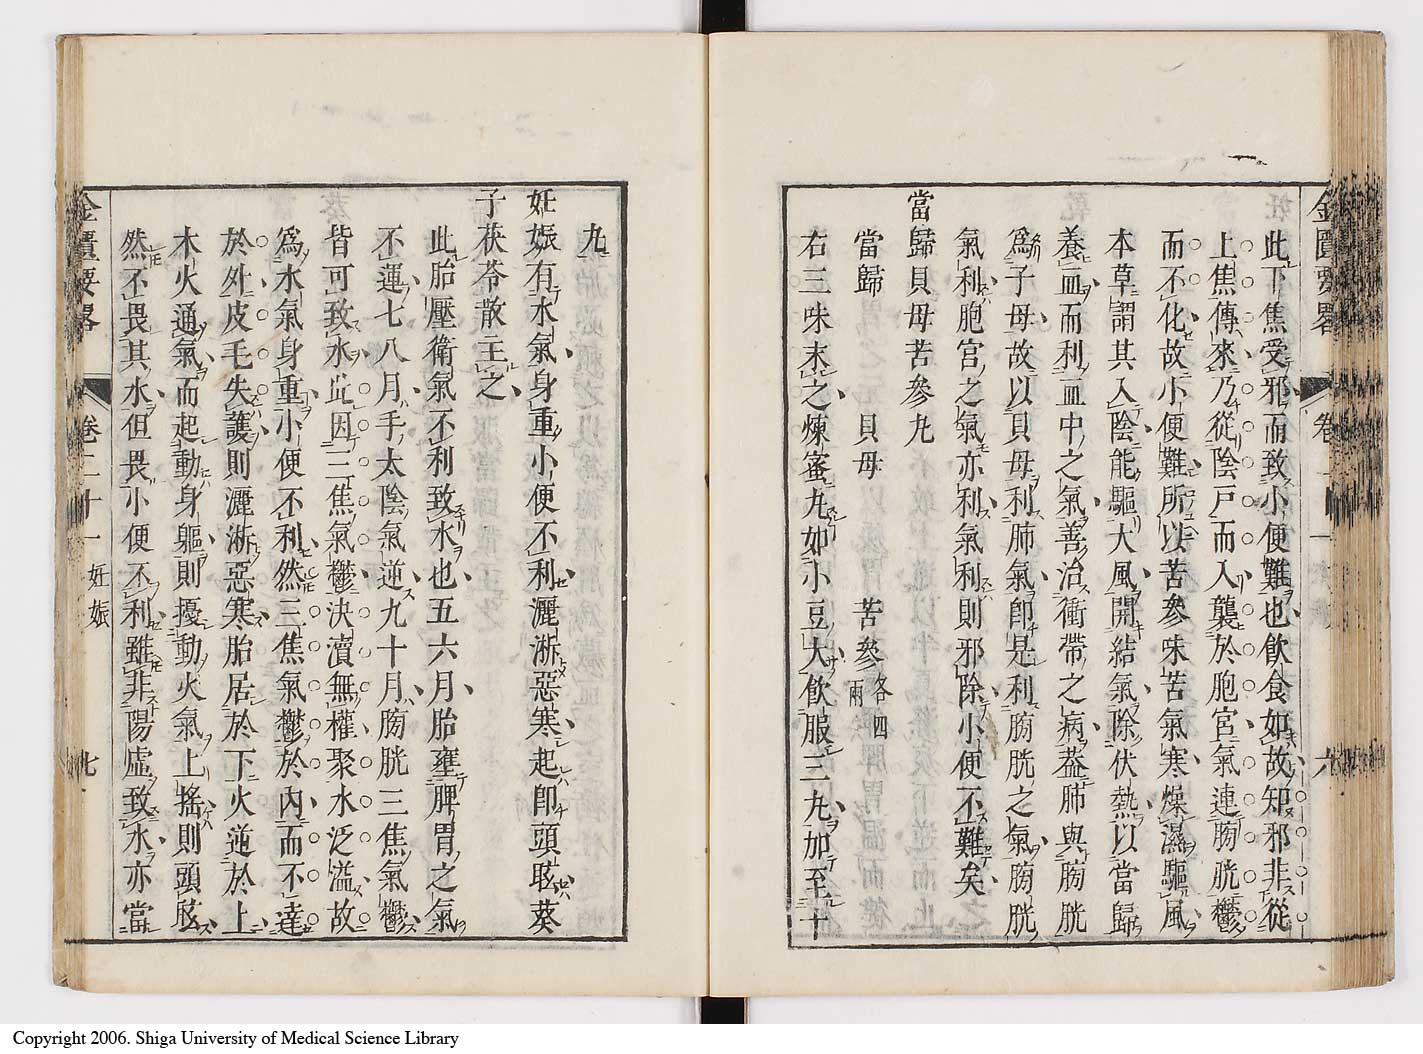 金匱要畧 卷 六
此下焦受邪而致小便難也飮食如故知邪非從
上焦傳來乃從陰戶而入襲於胞宮氣連膀胱鬱
而不化故小便難所以苦參味苦氣寒燥濕驅風
本草謂其入陰能驅大風開結氣除伏熱以當歸
養血而利血中之氣善治衝帶之病葢肺與膀胱
爲子母故以貝母利肺氣卽是利膀胱之氣膀胱
氣利胞宮之氣亦利氣利則邪除小便不難矣
當歸貝母苦參丸
當歸 貝母 苦參各四兩
右三味末之煉蜜丸如小豆大飮服三丸加至十
丸
妊娠有水氣身重小便不利灑淅惡寒起卽頭眩葵
子茯苓散主之
此胎壓衛氣不利致水也五六月胎壅脾胃之氣
不運七八月手太陰氣逆九十月膀胱三焦氣鬱
皆可致水此因三焦氣鬱決瀆無權聚水泛溢故
爲水氣身重小便不利然三焦氣鬱於內而不達
於外皮毛失護則灑淅惡寒胎居於下火逆於上
木火通氣而起動身軀則擾動火氣上搖則頭眩
然不畏其水但畏小便不利雖非陽虛致水亦當
金匱要畧 卷二十一 妊娠 七
Copyright 2006. Shiga University of Medical Science Library